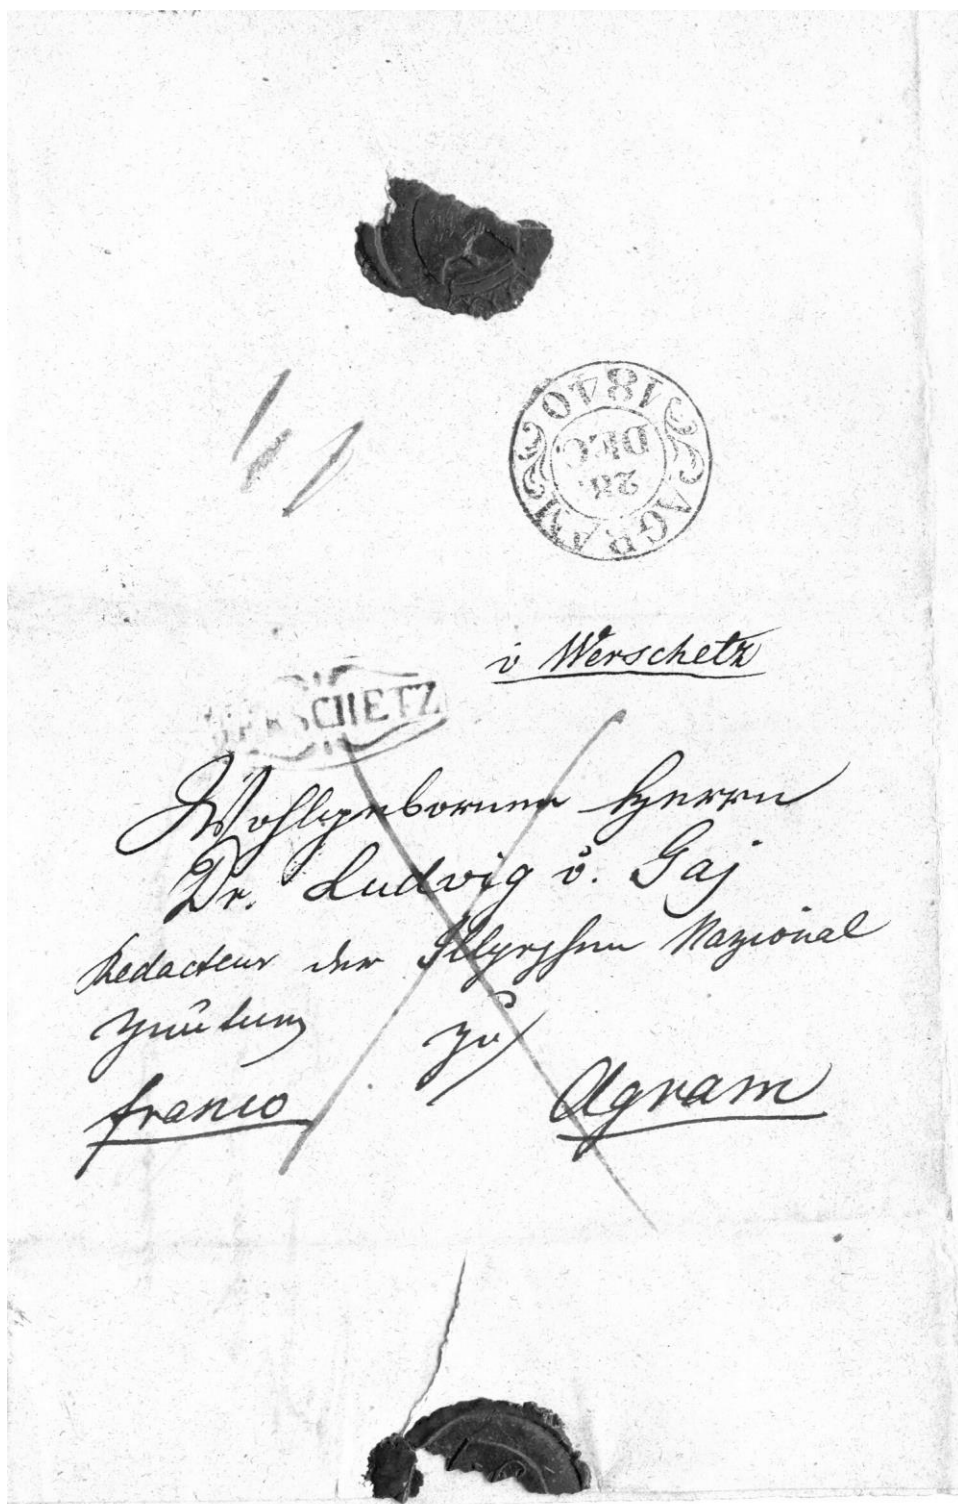 AGRAM
28.
DEC.
1840
v Werschetz
WERSCHETZ
Wohlgeborner Herrn
Dr. Ludwig v. Gaj
Redacteur der Illyrschen Nazional
Zeitung zu
franco Agram